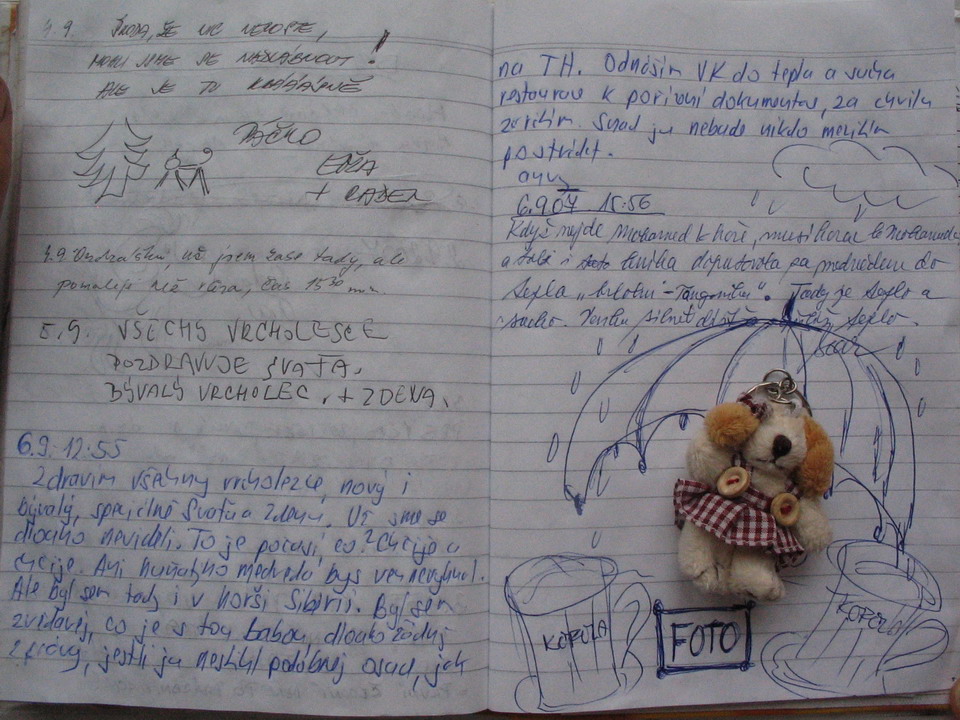 4.9. ŠKODA, ŽE NIC NEROSTE,
MOHLI JSME SE !
ALE JE TU KRÁÁÁSNĚ
PÁČKO
EDŽA
+ RADEK
4.9 už jsem zase tady, ale
pomaleji než včera, čas 15 30
5.9. VŠECHNY VRCHOLESCE
POZDRAVUJE SVAŤA,
BÝVALÝ VRCHOLEC, + ZDENA.
6.9. 12:55
Zdravím všechny vrcholezce, nový i
bývalý, speciálně Svaťu a Zdenu. Už jsme se
dlouho neviděli. To je počasí, co? Chčije a
chčije. Ani huňatýho medvěda bys ven nevyhnal.
Ale byl sem tady i v horší Sibiři. Byl sem
zvědavej, co je s tou babou, dlouho žádný
zprávy, jestli ju nestihl podobnej osud, jak
na TH. Odnáším VK do tepla a sucha
restaurace k pořízení dokumentace, za chvilu
zvrátím. Snad ju nebude nikdo mezitím
postrádat.
6.9.07 15:56
Když nejde Mohamed k hoře, musí hora k Mohamedu
a také i kniha doputovala za medvědem do
tepla . Tady je teplo a
sucho. Venku silnej déšť teplo.
KOFOLA
FOTO
KOFOLA